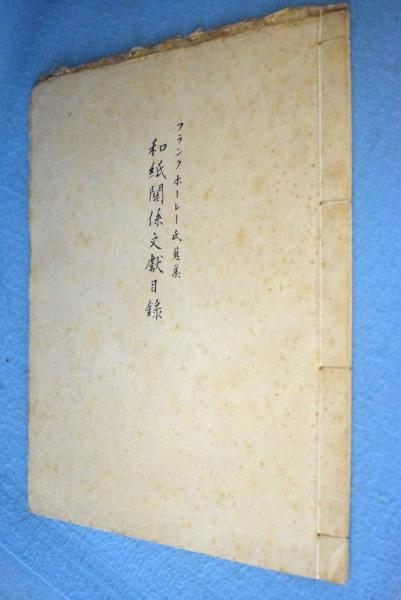 フランクホーレー氏蒐集
和紙關係文獻目錄